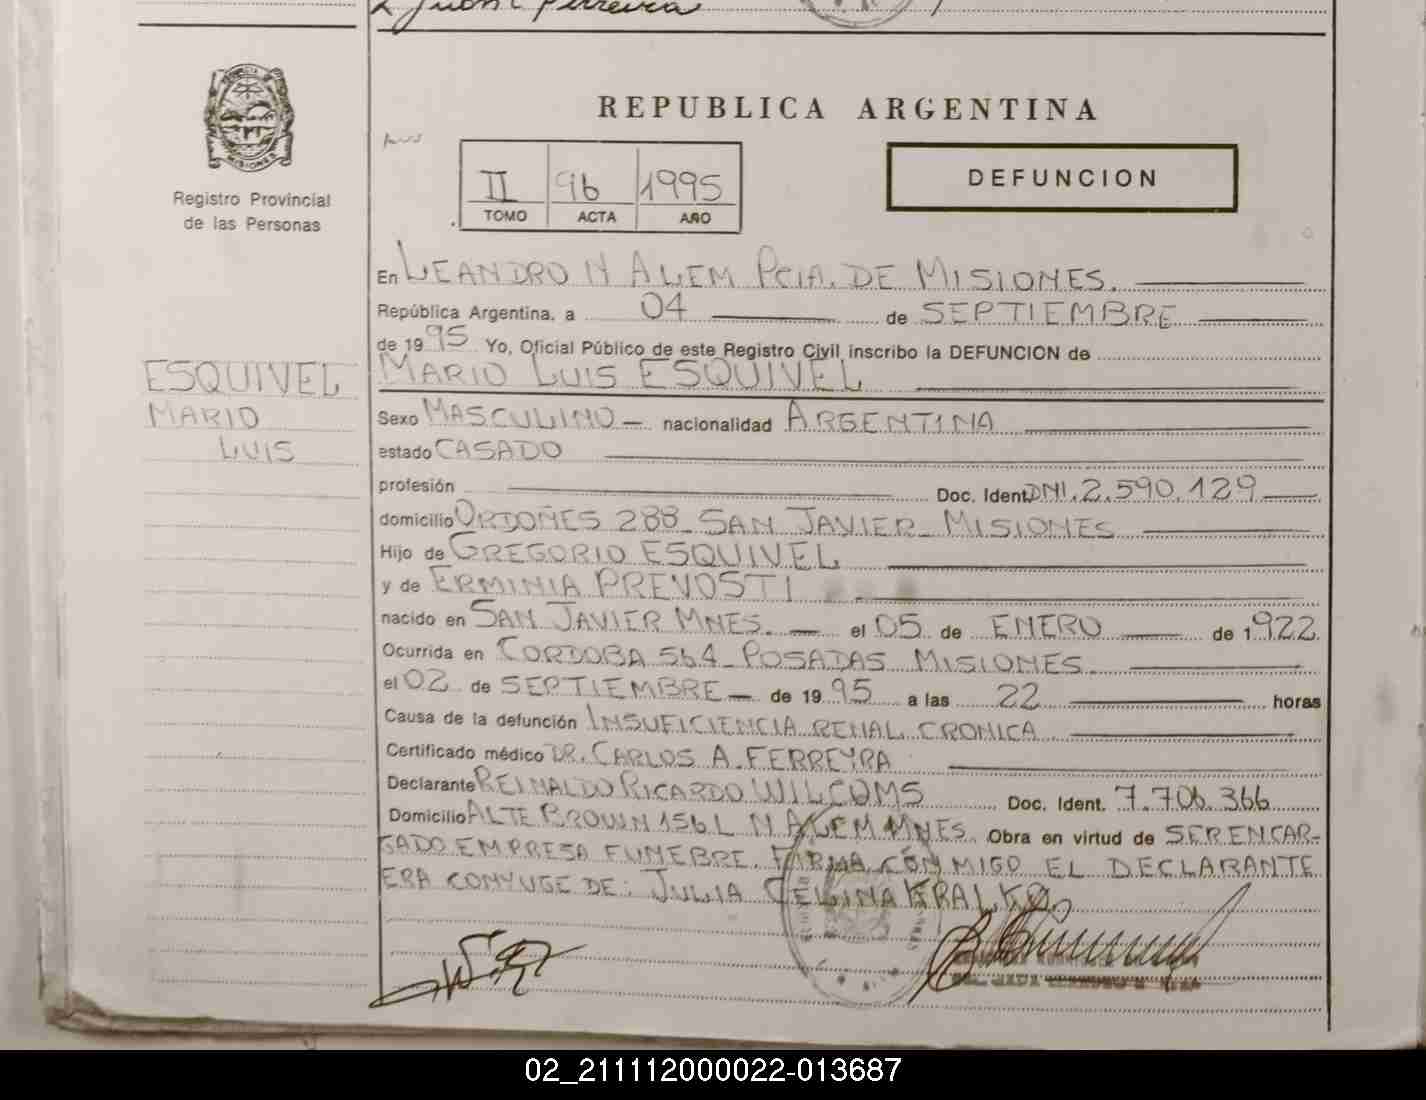 REPUBLICA ARGENTINA
MISIONES
Registro Provincial
de las Personas
II 96 1995
TOMO ACTA AÑO
DEFUNCION
En LEANDRO N ALEM PCIA. DE MISIONES.
República Argentina, a 04 de SEPTIEMBRE
de 1995 Yo, Oficial Público de este Registro Civil inscribo la DEFUNCION de
MARIO LUIS ESQUIVEL
ESQUIVEL
MARIO
LUIS
Sexo MASCULINO nacionalidad ARGENTINA
estado CASADO
profesión Doc. Ident. DNI. 2.590.129
domicilio ORDOÑES 288 SAN JAVIER MISIONES
Hijo de GREGORIO ESQUIVEL
y de ERMINIA PREVOSTI
nacido en SAN JAVIER MNES. el 05 de ENERO de 1922
Ocurrida en CORDOBA 564 - POSADAS MISIONES
el 02 de SEPTIEMBRE de 1995 a las 22 horas
Causa de la defunción INSUFICIENCIA RENAL CRONICA
Certificado médico DR. CARLOS A. FERREYRA
Declarante REINALDO RICARDO WILCOMS Doc. Ident. 7.706.366
Domicilio ALTE BROWN 156 L N ALEM MNES. Obra en virtud de SER ENCAR-
GADO EMPRESA FUNEBRE. FIRMA CONMIGO EL DECLARANTE
ERA CONYUGE DE: JULIA CELINA KRALKO.
02_211112000022-013687